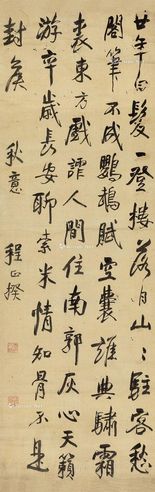 廿年白髮一登樓落日山山駐客愁
閣筆不成鸚鵡賦空囊誰典驌霜
裘東方戲謔人間住南郭灰心天籟
游卒歲長安聊索米情知骨不是
封侯 秋意 程正揆